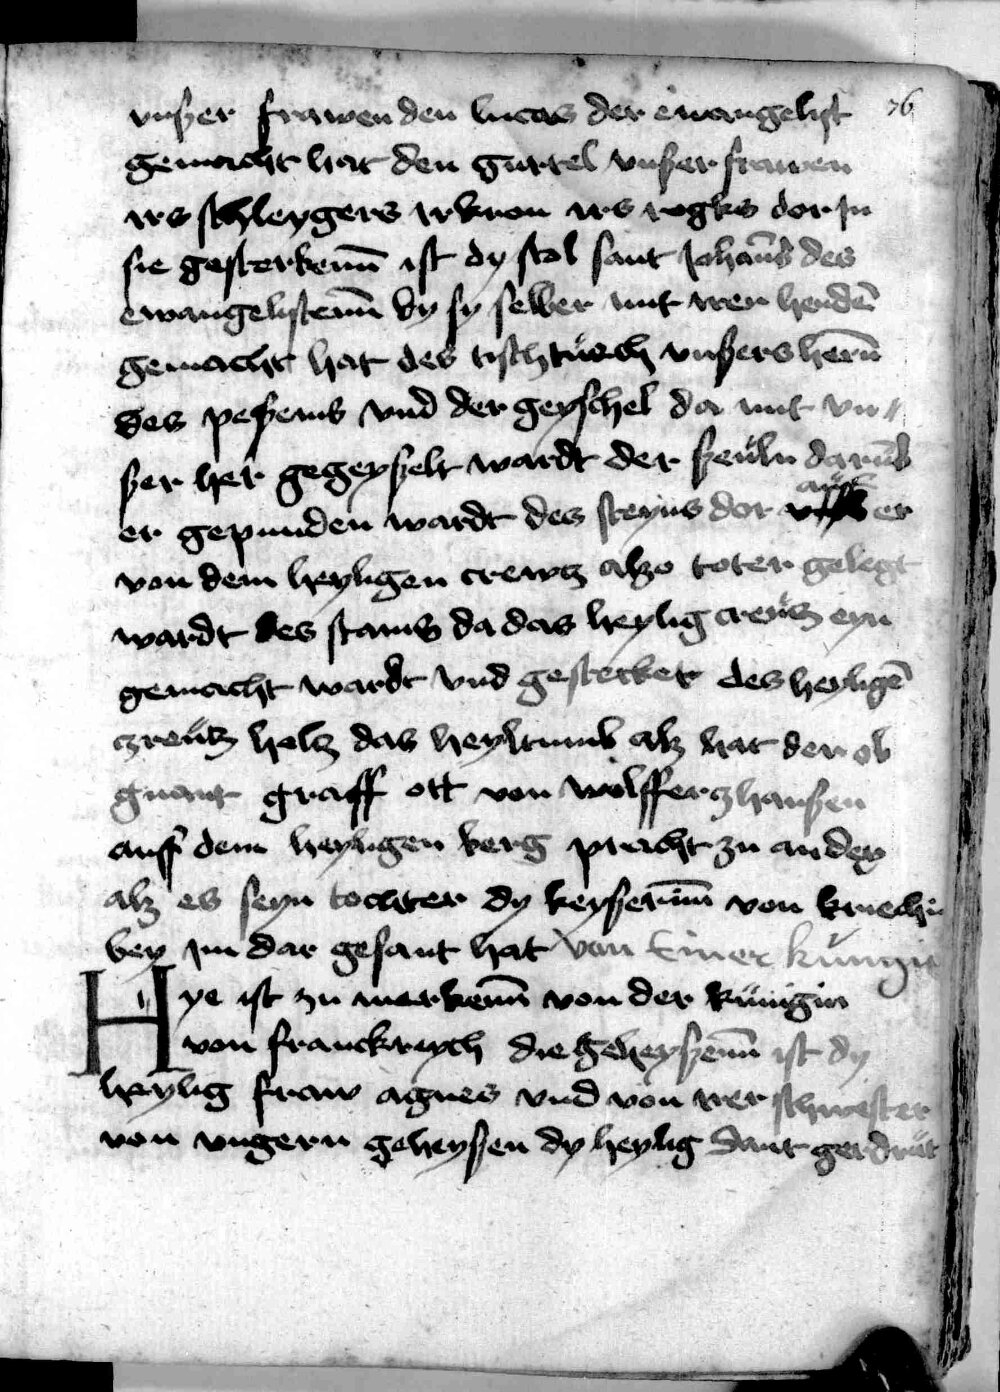 76
vnßer frawen den lucas der ewangelist
gemacht hat den gurtel vnßer frawen
irs schleygers ir kron irs rogks dor jn
sie gesterbenn̄ ist dy stol sant Johan̄s des
ewangelistenn̄ dy sy selber mit irer hendē
gemacht hat des tischtuͤch vnßers hern̄
des peßems vnd der geyschel da mit vn⸗
ßer her gegeyßelt wardt der ßeuͤln daruͤb
auff
er gepunden wardt des steyns dor er
von dem heyligen crewtz alßo toter gelegt
wardt des stams da das heylig creuͤtz eyn
gemacht wardt vnd gestecket des heyligē
creuͤtz holtz das heyltumb alß hat der ob
gnant graff ott von wolffertzhaußen
auff dem heyligen berg pracht zu andex
alß es seyn tochter dy keyßerinn̄ von kriechn̄
bey im dar gesant hat Von Einer kuͤnigin
Hye ist zu merkenn̄ von der kuͤnigin
von franckrych die geheyßenn̄ ist dy
heylig fraw agnes vnd von irer schwester
von vngern geheyßen dy heylig Sant gerdruͤt